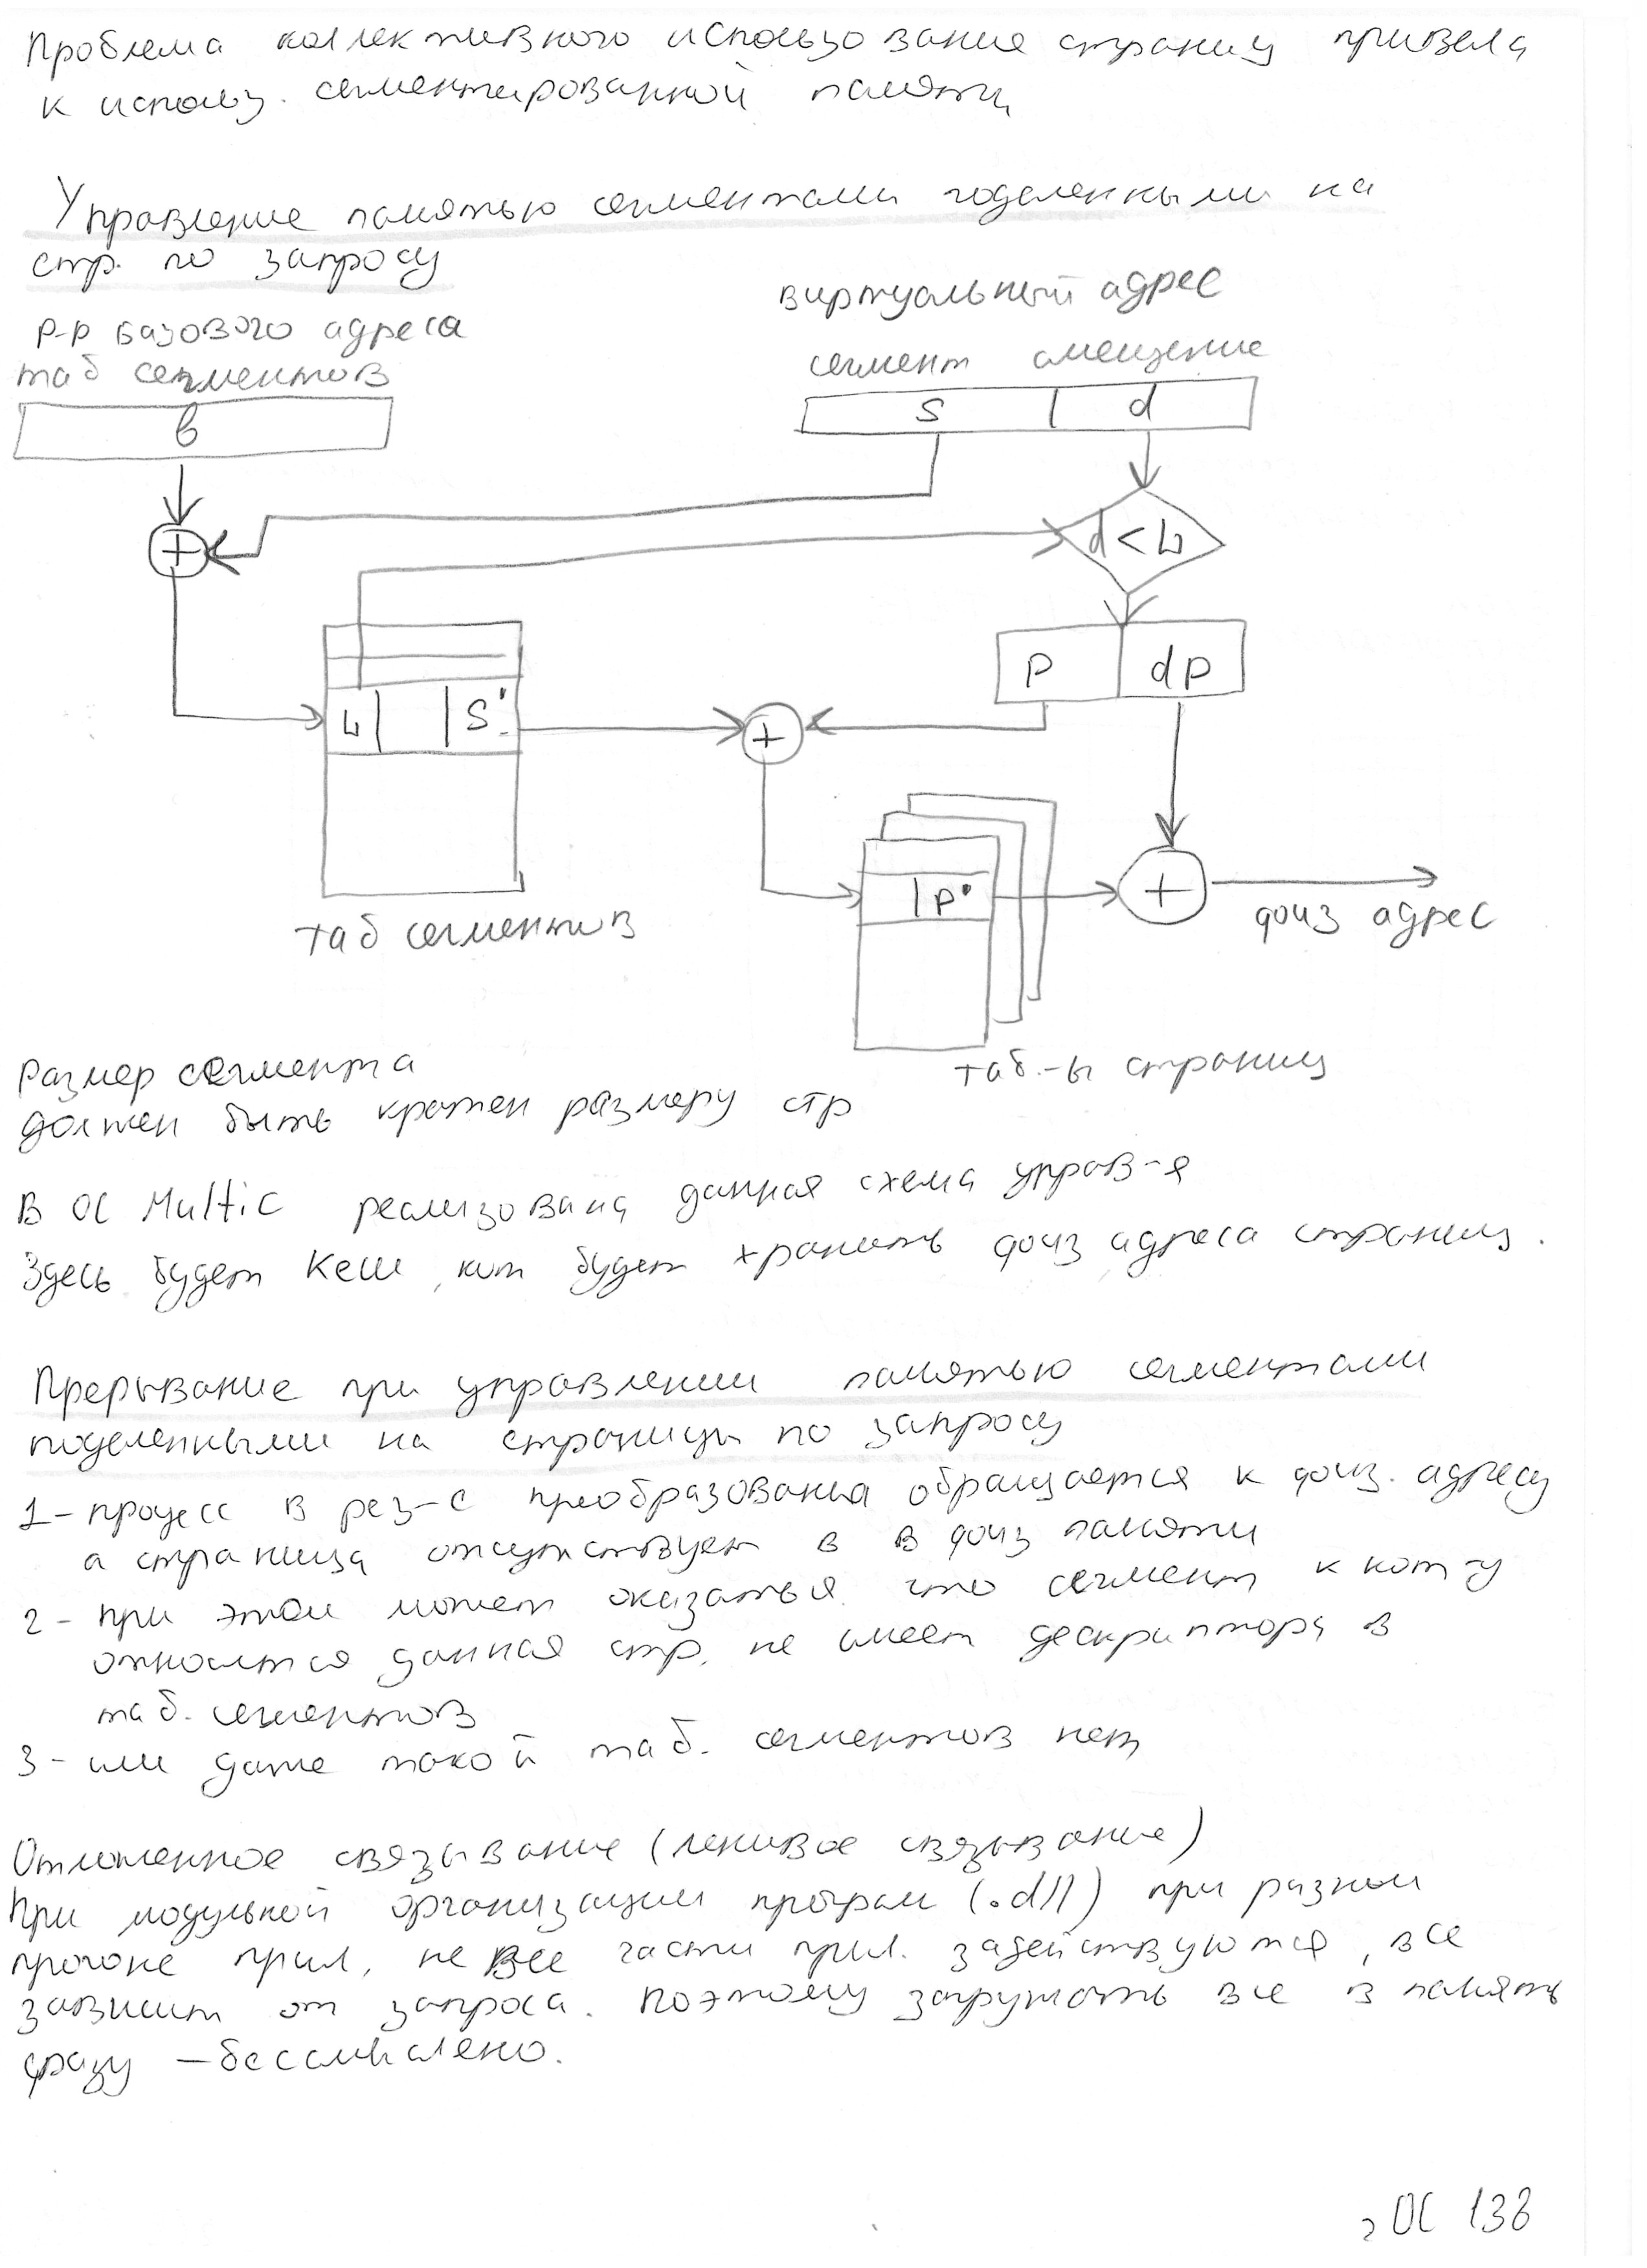 Проблема коллективного использование страниц привела
к использ. сегментированной памяти
Управление памятью сегментами поделенными на
стр. по запросу
виртуальный адрес
р-р базового адреса
таб сегментов
сегмент смещение
b
s | d
+
d < L
p | dp
L | | S'
+
| p'
+
физ адрес
таб сегментов
таб.-ы страниц
Размер сегмента
должен быть кратен размеру стр
В ОС Multic реализована данная схема управ-я
Здесь будет Кеш, кот будет хранить физ адреса страниц.
Прерывание при управлении памятью сегментами
поделенными на страницы по запросу
1 - процесс в рез-е преобразования обращается к физ. адресу
а страница отсутствует в в физ памяти
2 - при этом может оказаться что сегмент к кот-у
относится данная стр. не имеет дескриптора в
таб. сегментов
3 - или даже такой таб. сегментов нет
Отложенное связывание (ленивое связывание)
При модульной организации програм (.dll) при разном
прогоне прил, не все части прил. задействуются, все
зависит от запроса. Поэтому загружать все в память
сразу - бессмыслено.
ОС 138